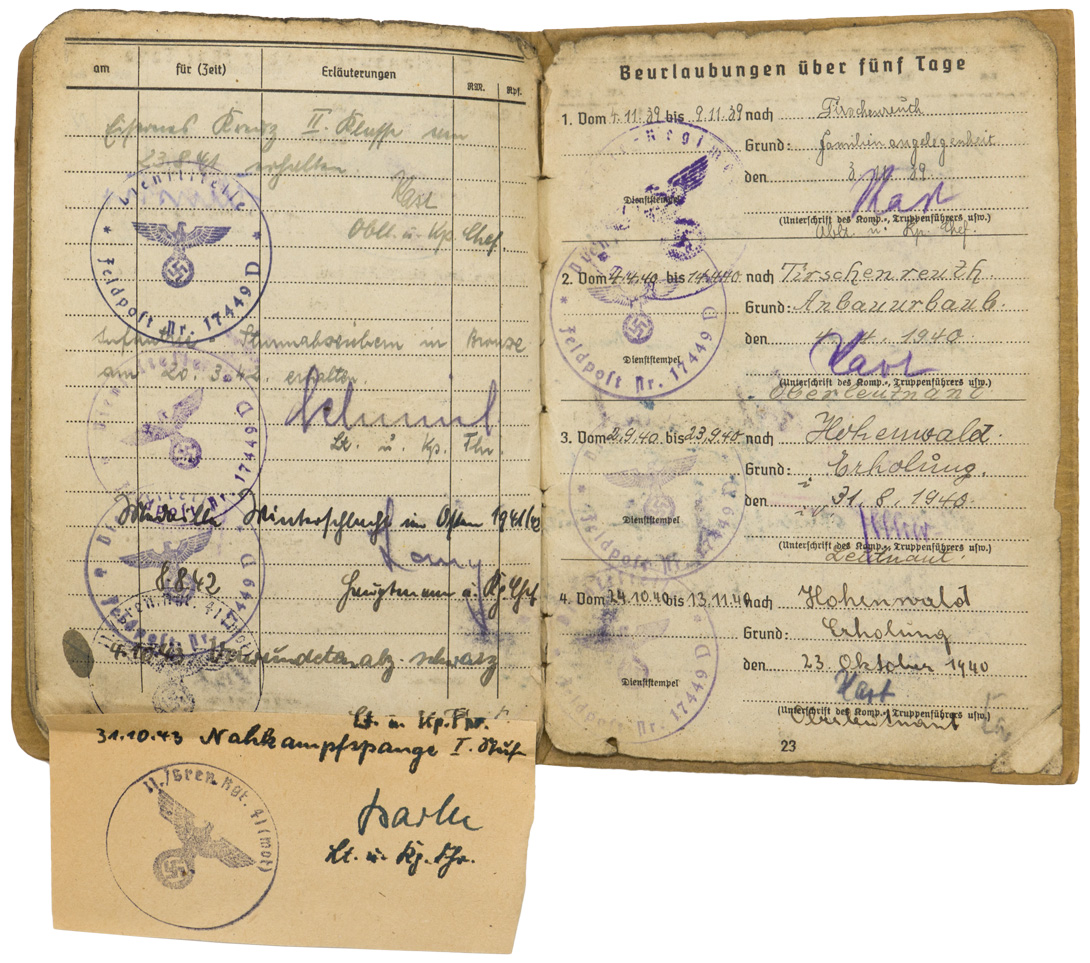 am für (Zeit) Erläuterungen RM. Rpf.
Eisernes Kreuz II. Klasse am
23.8.41 erhalten.
Hart
Oblt. u. Kp. Chef.
Dienststelle
Feldpost Nr. 17449 D
Infanterie - Sturmabzeichen in Bronze
am 20.3.42. erhalten.
Lt. u. Kp. Fhr.
Feldpost Nr. 17449 D
Medaille Winterschlacht im Osten 1941/42
8.8.42 Hauptmann u. Kp. Chef
Feldpost Nr. 17449 D
4.10.43 Verwundetenabz. schwarz
Lt. u. Kp. Fhr.
31.10.43 Nahkampfspange I. Stuf
II./Gren. Rgt. 41 (mot)
Lt. u. Kp. Fhr.
Beurlaubungen über fünf Tage
1. Vom 4.11.39 bis 9.11.39 nach Tirschenreuth
Grund: Familienangelegenheit
den 3.11.39
Dienststempel
Hart
(Unterschrift des Komp.-, Truppenführers usw.)
Oblt. u. Kp. Chef.
2. Vom 4.4.40 bis 14.4.40 nach Tirschenreuth
Grund: Anbauurlaub.
den 4.4.1940
Feldpost Nr. 17449 D
Dienststempel
Hart
(Unterschrift des Komp.-, Truppenführers usw.)
Oberleutnant
3. Vom 2.9.40. bis 23.9.40 nach Hohenwald.
Grund: Erholung.
den 31.8.1940.
i.V.
Dienststempel
Feldpost Nr. 17449 D
(Unterschrift des Komp.-, Truppenführers usw.)
Leutnant.
4. Vom 24.10.40 bis 13.11.40 nach Hohenwald
Grund: Erholung
den 23. Oktober 1940
Dienststempel
Hart
(Unterschrift des Komp.-, Truppenführers usw.)
Oberleutnant
17449 D
23